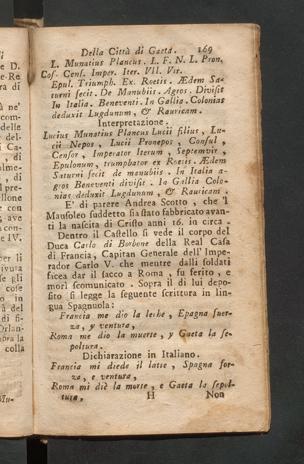 Della Città di Gaeta. 169
L. Munatius Plancus. L. F. N. L. Pron.
Cos. Cens. Imper. Iter. VII. Vir.
Epul. Triumph. Ex. Roetis. Ædem Sa-
turni fecit. De Manubiis. Agros. Divisit
In Italia. Beneventi. In Gallia. Colonias
deduxit Lugdunum, & Rauricam.
Interpretazione.
Lucius Munatius Plancus Lucii filius, Lu-
cii Nepos, Lucii Pronepos, Consul,
Censor, Imperator Iterum, Septemvir
Epulonum, triumphator ex Roetis. Ædem
Saturni fecit de manubiis. In Italia a-
gros Beneventi divisit. In Gallia Colo-
nias deduxit Lugdunum, & Rauricam.
E' di parere Andrea Scotto, che 'l
Mausoleo suddetto sia stato fabbricato avan-
ti la nascita di Cristo anni 16. in circa.
Dentro il Castello si vede il corpo del
Duca Carlo di Borbone della Real Casa
di Francia, Capitan Generale dell' Impe-
rador Carlo V. che mentre dalli soldati
facea dar il sacco a Roma, fu ferito, e
morì scomunicato. Sopra il di lui depo-
sito si legge la seguente scrittura in lin-
gua Spagnuola:
Francia me dio la leche, Epagna fuer-
za, y ventura,
Roma me dio la muerte, y Gaeta la se-
poltura.
Dichiarazione in Italiano.
Francia mi diede il latte, Spagna for-
za, e ventura,
Roma mi diè la morte, e Gaeta la sepol-
tura, H Non